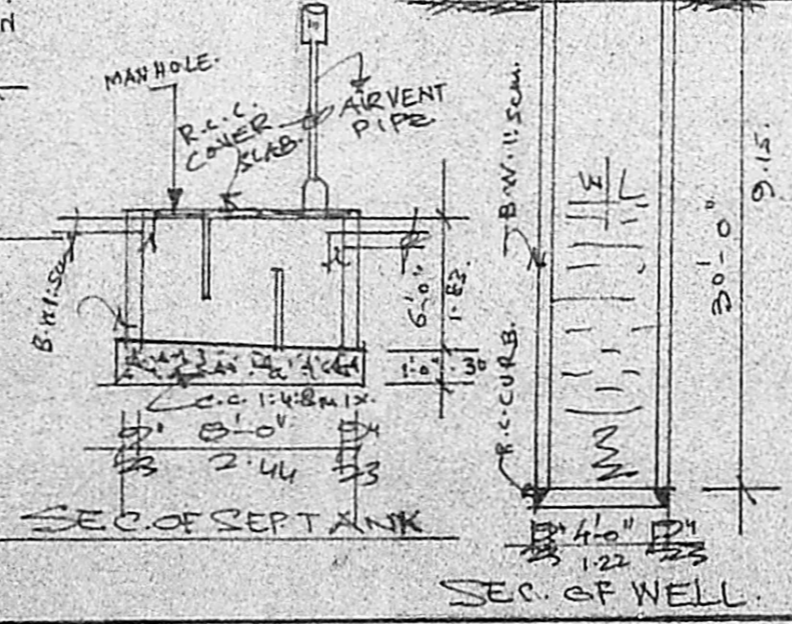 N
MANHOLE.
R.C.C.
COVER
SLAB.
AIRVENT
PIPE.
6'-0"
1.83
1'-0" .30
C.C. 1:4:8 MIX.
9" 8'-0" 9"
23 2.44 23
SEC. OF SEPTANK
B.W. 1:5 cm.
W L
R.C. CURB.
9.15.
30'-0"
9" 4'-0" 9"
23 1.22 23
SEC. OF WELL.